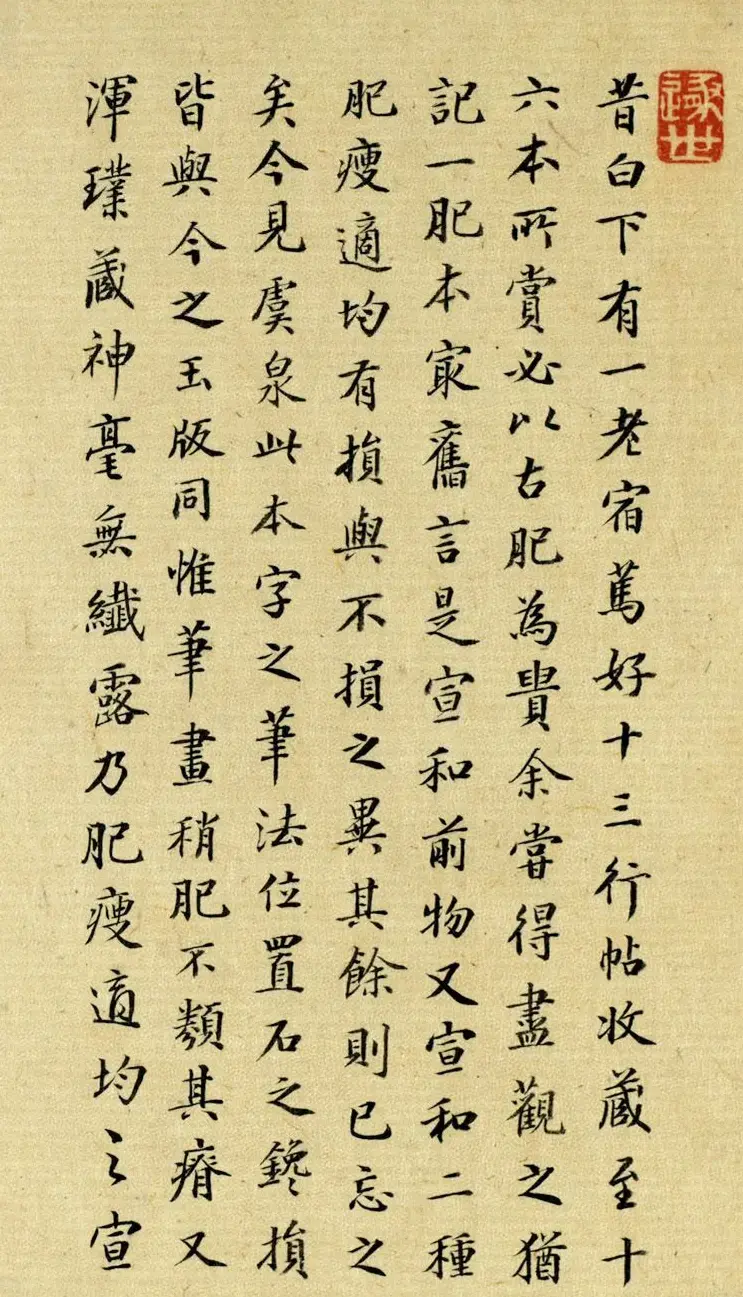 昔白下有一老宿篤好十三行帖收藏至十
六本所賞必以古肥為貴余嘗得盡觀之猶
記一肥本㝡舊言是宣和前物又宣和二種
肥瘦適均有損與不損之異其餘則已忘之
矣今見虞泉此本字之筆法位置石之鑱損
皆與今之玉版同惟筆畫稍肥不類其瘠又
渾璞藏神毫無纖露乃肥瘦適均之宣